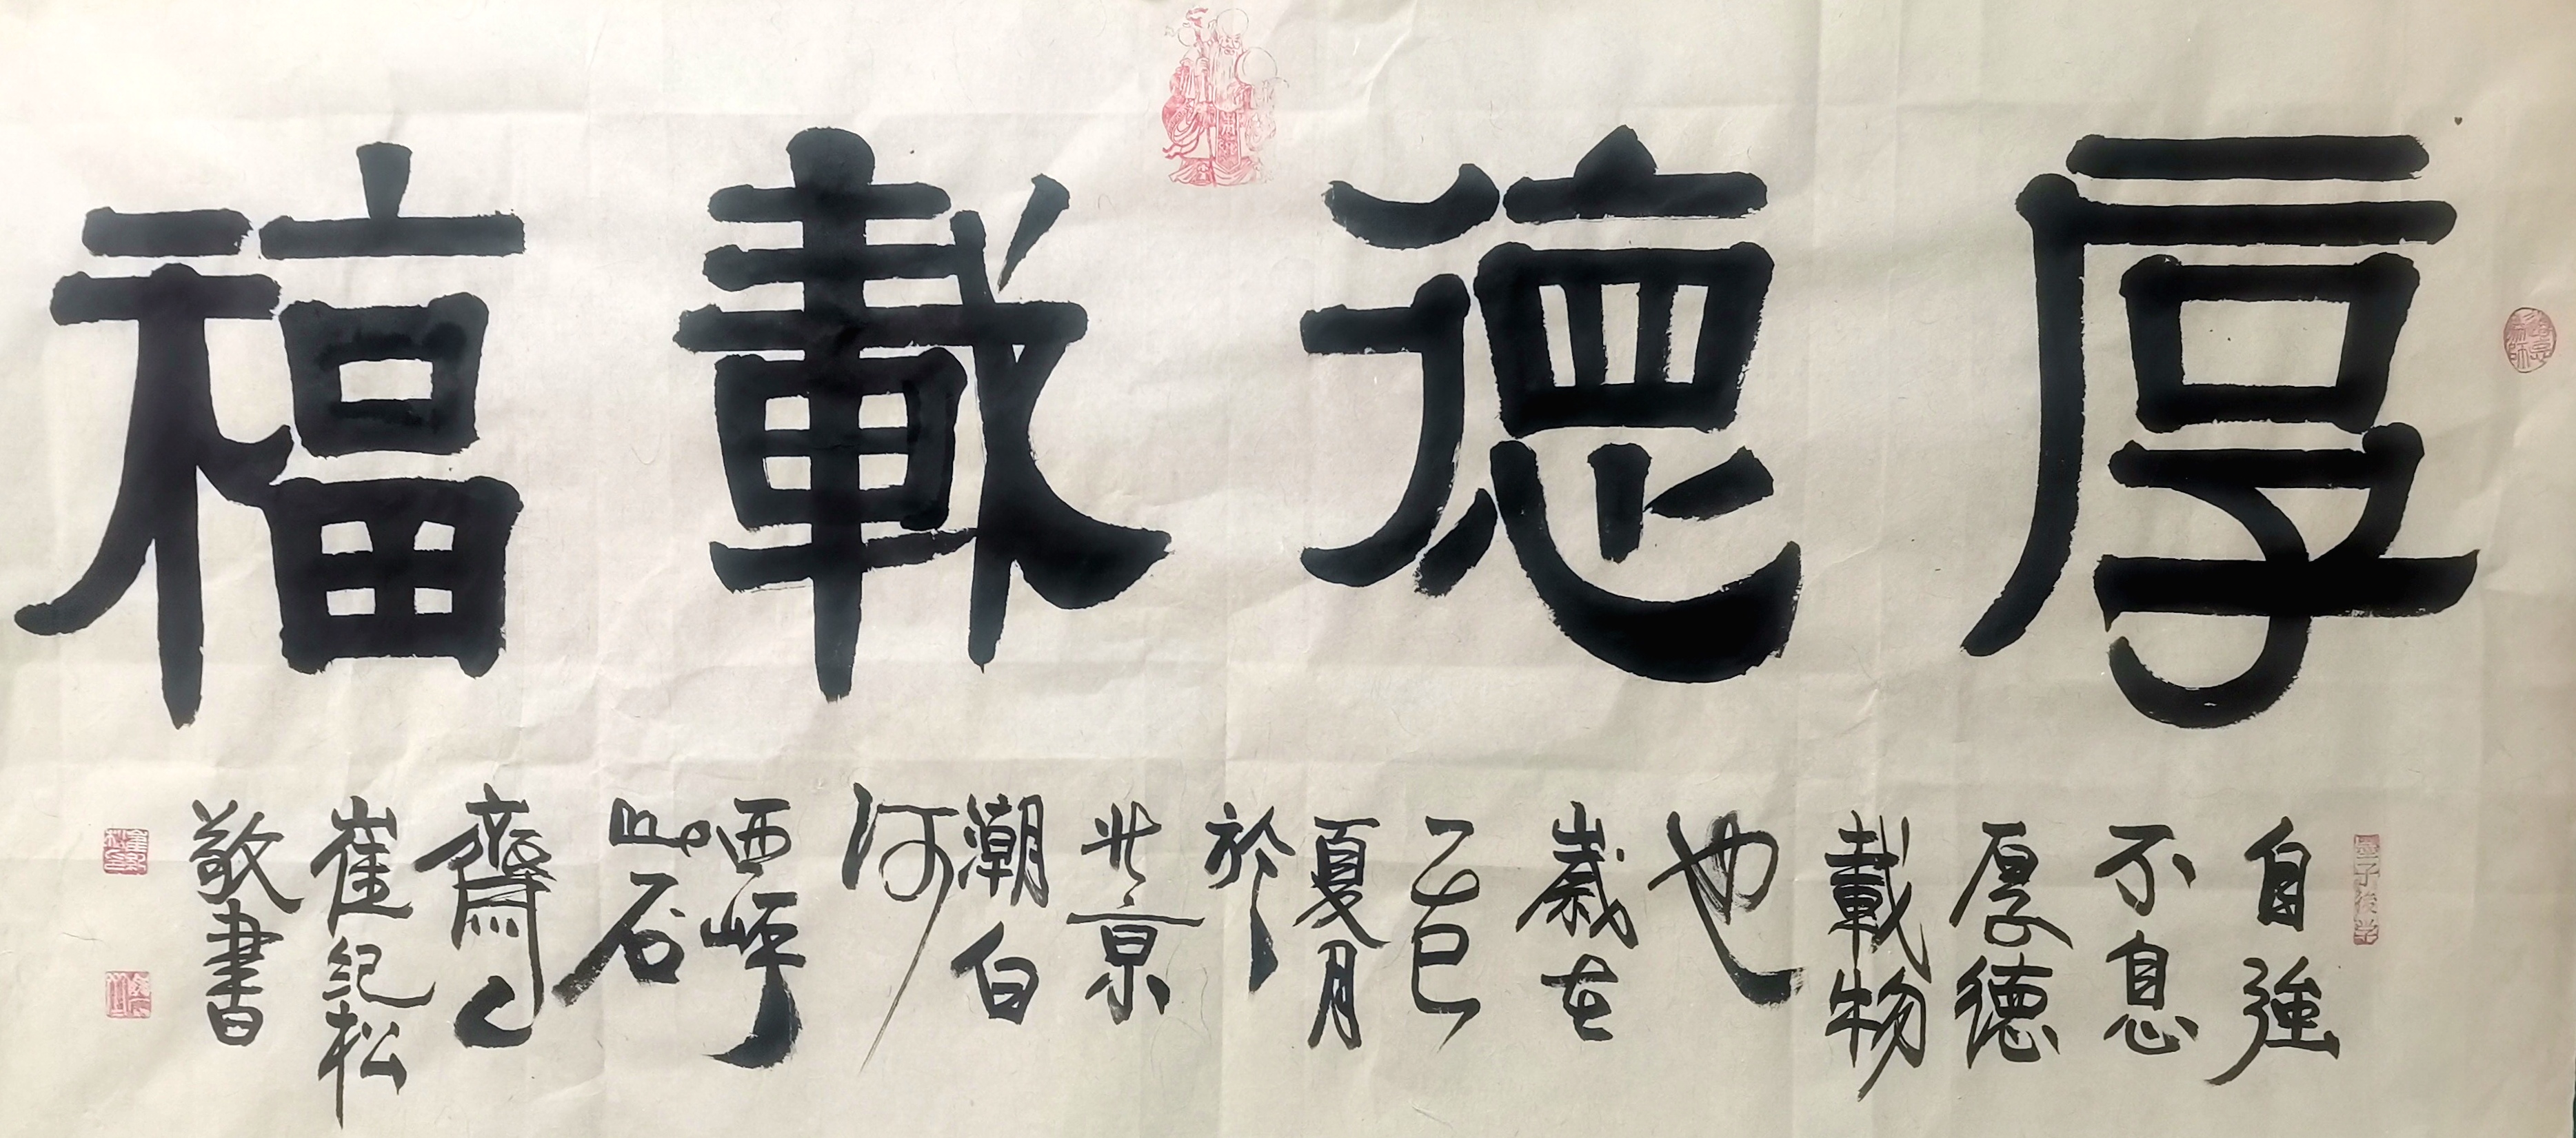 厚德載福
自強
不息
厚德
載物
也
歲在
乙巳
夏月
於
北京
潮白
河
西岸
山石
齋
崔紀松
敬書